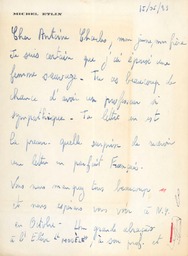 MICHEL ETLIN
15/05/93
Cher Antoine Charles, mon jeune, mon fière
Je suis certain que j'ai épousé une
femme sauvage. Tu as beaucoup de
chance d'avoir un professeur si
sympathique. Ta lettre en est
la preuve. quelle surprise de recevoir
une lettre en parfait Français.
Vous nous manquez tous beaucoup, et
nous espérons vous voir à N.Y.
en Octobre. Ton grand
à St Ellen à son prof. et